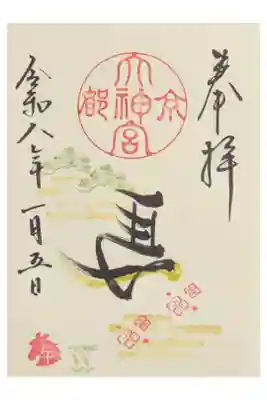 奉拝
京都大神宮
馬
令和八年一月五日